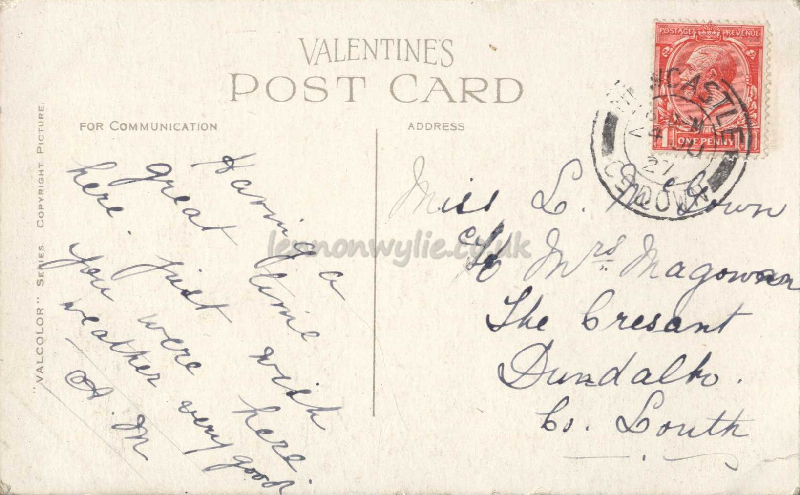 VALENTINE'S
POST CARD
FOR COMMUNICATION
ADDRESS
"VALCOLOR" SERIES COPYRIGHT PICTURE.
POSTAGE REVENUE
ONE PENNY
NEWCASTLE
27
CO. DOWN
Having a
great time
here. just wish
you were here.
weather very good
A. M
Miss L. Down
c/o Mrs Magowan
The Cresant
Dundalk.
Co. Louth
lennonwylie.co.uk